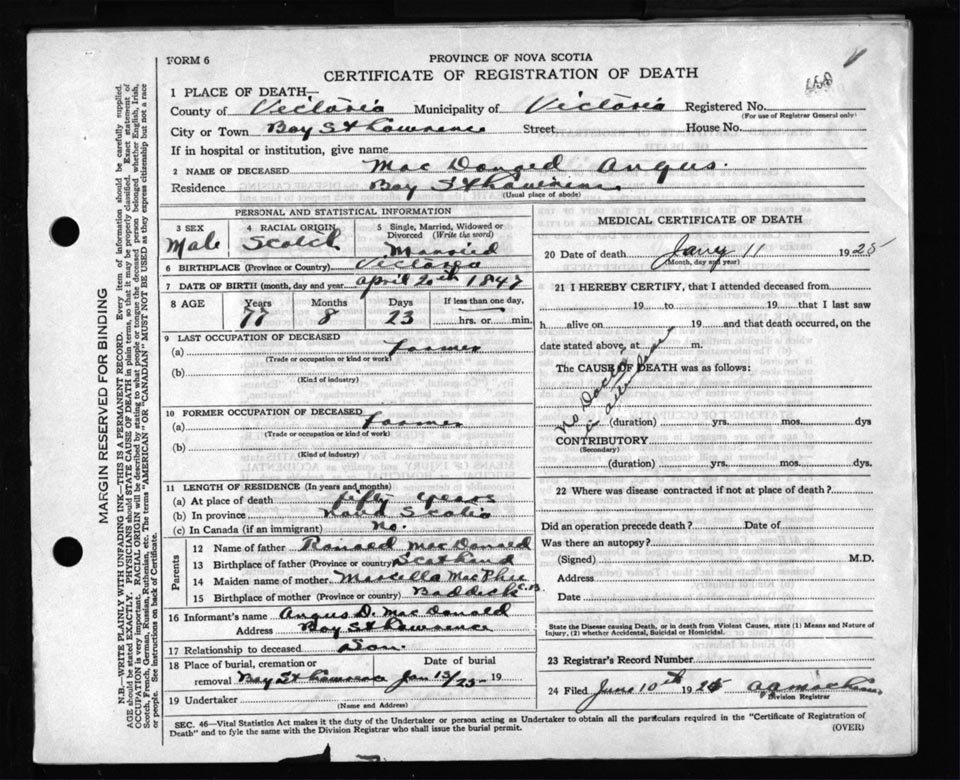 FORM 6
PROVINCE OF NOVA SCOTIA
CERTIFICATE OF REGISTRATION OF DEATH
1 PLACE OF DEATH—
County of Victoria Municipality of Victoria Registered No.
(For use of Registrar General only)
City or Town Bay St Lawrence Street House No.
If in hospital or institution, give name
2 NAME OF DECEASED Mac Donald Angus.
Residence Bay St Lawrence
(Usual place of abode)
PERSONAL AND STATISTICAL INFORMATION
3 SEX Male
4 RACIAL ORIGIN Scotch
5 Single, Married, Widowed or Divorced (Write the word) Married
6 BIRTHPLACE (Province or Country) Victoria
7 DATE OF BIRTH (month, day and year) april 20th 1847
8 AGE Years Months Days If less than one day,
77 8 23 hrs. or min.
9 LAST OCCUPATION OF DECEASED
(a) Farmer
(Trade or occupation or kind of work)
(b)
(Kind of industry)
10 FORMER OCCUPATION OF DECEASED
(a) Farmer
(Trade or occupation or kind of work)
(b)
(Kind of industry)
11 LENGTH OF RESIDENCE (In years and months)
(a) At place of death fifty years
(b) In province Nova Scotia
(c) In Canada (if an immigrant) No.
Parents
12 Name of father Ronald Mac Donald
13 Birthplace of father (Province or country) Scotland
14 Maiden name of mother Marcella Mac Phee
15 Birthplace of mother (Province or country) Baddeck C.B.
16 Informant's name Angus D. Mac Donald
Address Bay St Lawrence
17 Relationship to deceased Son
18 Place of burial, cremation or removal Bay St Lawrence
Date of burial Jan 13/25 19
19 Undertaker
(Name and Address)
MEDICAL CERTIFICATE OF DEATH
20 Date of death Jany 11 1925
(Month, day and year)
21 I HEREBY CERTIFY, that I attended deceased from
19 to 19 that I last saw
h alive on 19 and that death occurred, on
date stated above, at m.
The CAUSE OF DEATH was as follows:
No Doctor in attendance
(duration) yrs. mos. dys
CONTRIBUTORY
(Secondary)
(duration) yrs. mos. dys.
22 Where was disease contracted if not at place of death?
Did an operation precede death? Date of
Was there an autopsy?
(Signed) M.D.
Address
Date
State the Disease causing Death, or in death from Violent Causes, state (1) Means and Nature of
Injury, (2) whether Accidental, Suicidal or Homicidal.
23 Registrar's Record Number
24 Filed June 10th 1925
Division Registrar
SEC. 46—Vital Statistics Act makes it the duty of the Undertaker or person acting as Undertaker to obtain all the particulars required in the "Certificate of Registration of
Death" and to fyle the same with the Division Registrar who shall issue the burial permit.
(OVER)
MARGIN RESERVED FOR BINDING
N.B.—WRITE PLAINLY WITH UNFADING INK—THIS IS A PERMANENT RECORD. Every item of information should be carefully supplied.
AGE should be stated EXACTLY. PHYSICIANS should STATE CAUSE OF DEATH in plain terms, so that it may be properly classified. Exact statement of
OCCUPATION is very important. RACIAL ORIGIN will be described by stating to what people or tongue the deceased person belonged whether English, Irish,
Scotch, French, German, Russian, Ruthenian, etc. The terms "AMERICAN" OR "CANADIAN" MUST NOT BE USED as they express citizenship but not a race
or people. See instructions on back of Certificate.